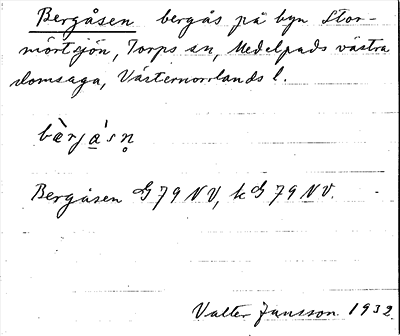 Bergåsen bergås på byn Stor-
mörtsjön, Torps sn, Medelpads västra
domsaga, Västernorrlands l.
bæ̀rja̱ˈsn̥
Bergåsen G 79 NV, k G 79 NV.
Valter Jansson 1932